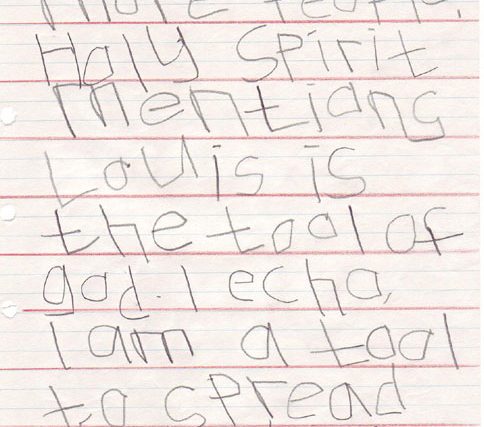 more people.
Holy Spirit
mentions
Louis is
the tool of
god. I echo,
I am a tool
to spread